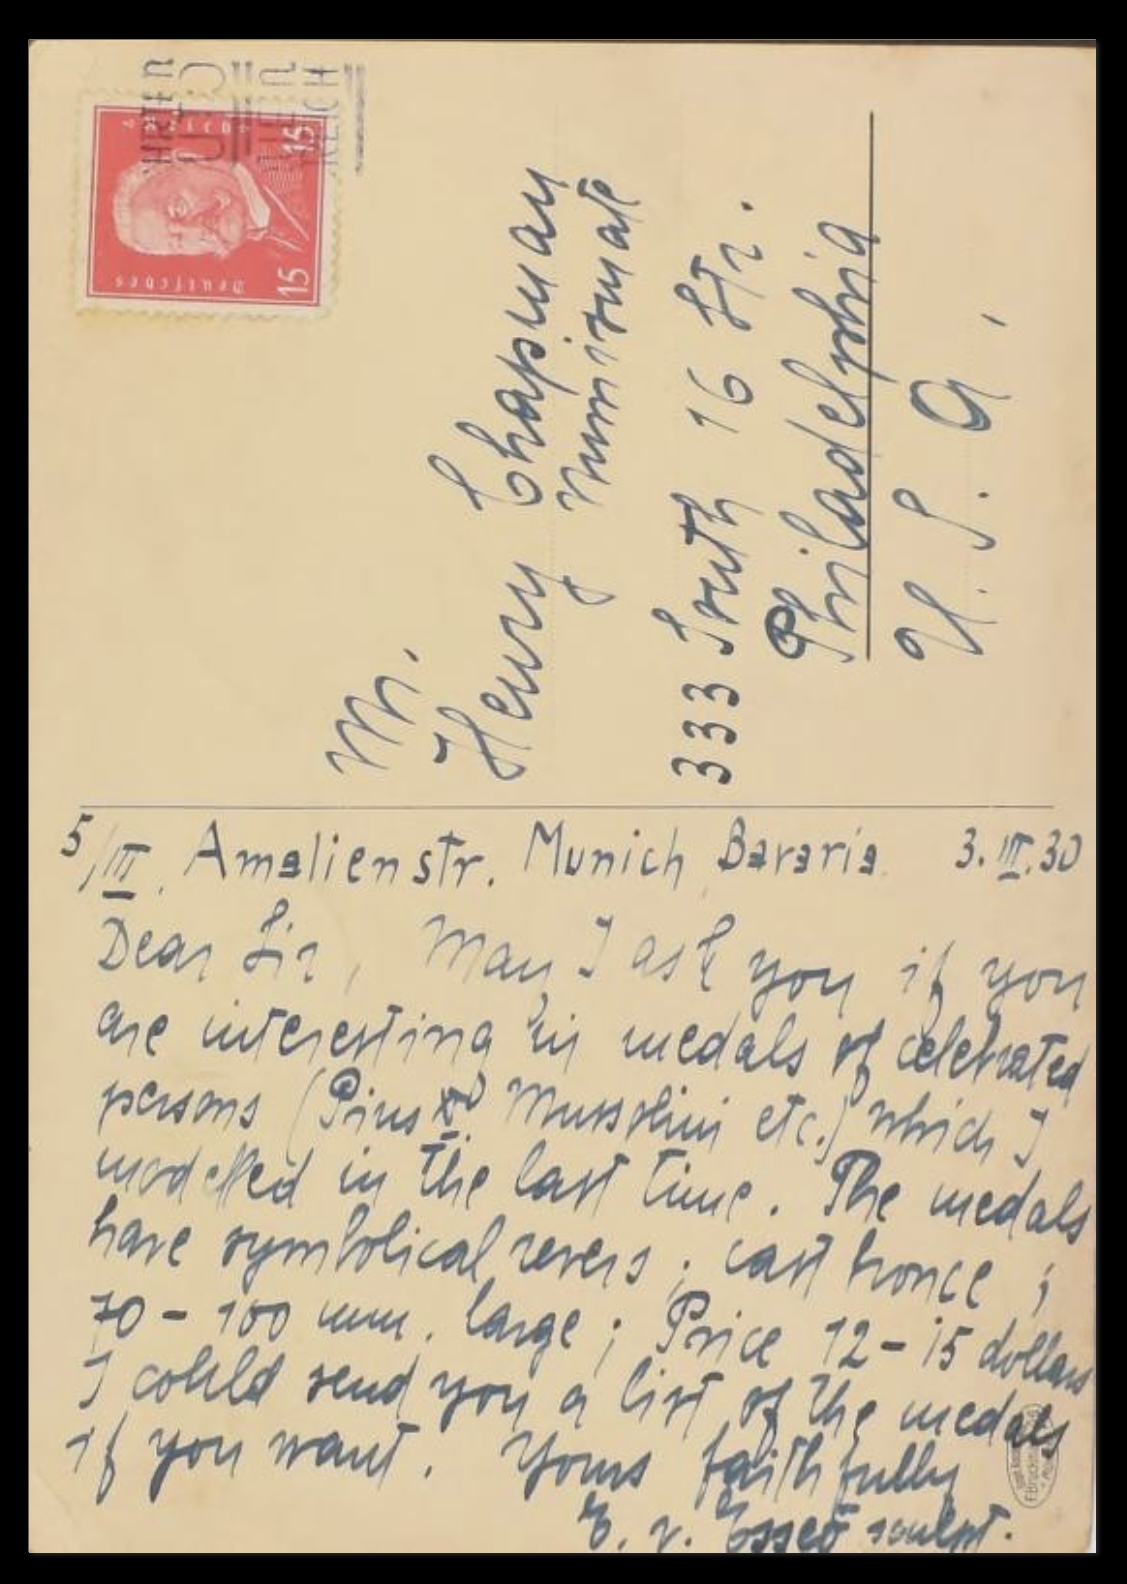 Deutsches Reich
15 15
REICH
Mr.
Henry Chapman
Numismate
333 South 16 Str.
Philadelphia
U. S. A.
5/III. Amalienstr. Munich Bavaria 3.III.30
Dear Sir, May I ask you if you
are interesting in medals of celebrated
persons (Pius XI. Mussolini etc.) which I
modelled in the last time. The medals
have symbolical revers; cast bronce;
70-100 mm. large; Price 12-15 dollars
I could send you a list of the medals
if you want. Yours faithfully
E. v. Esseö sculpt.